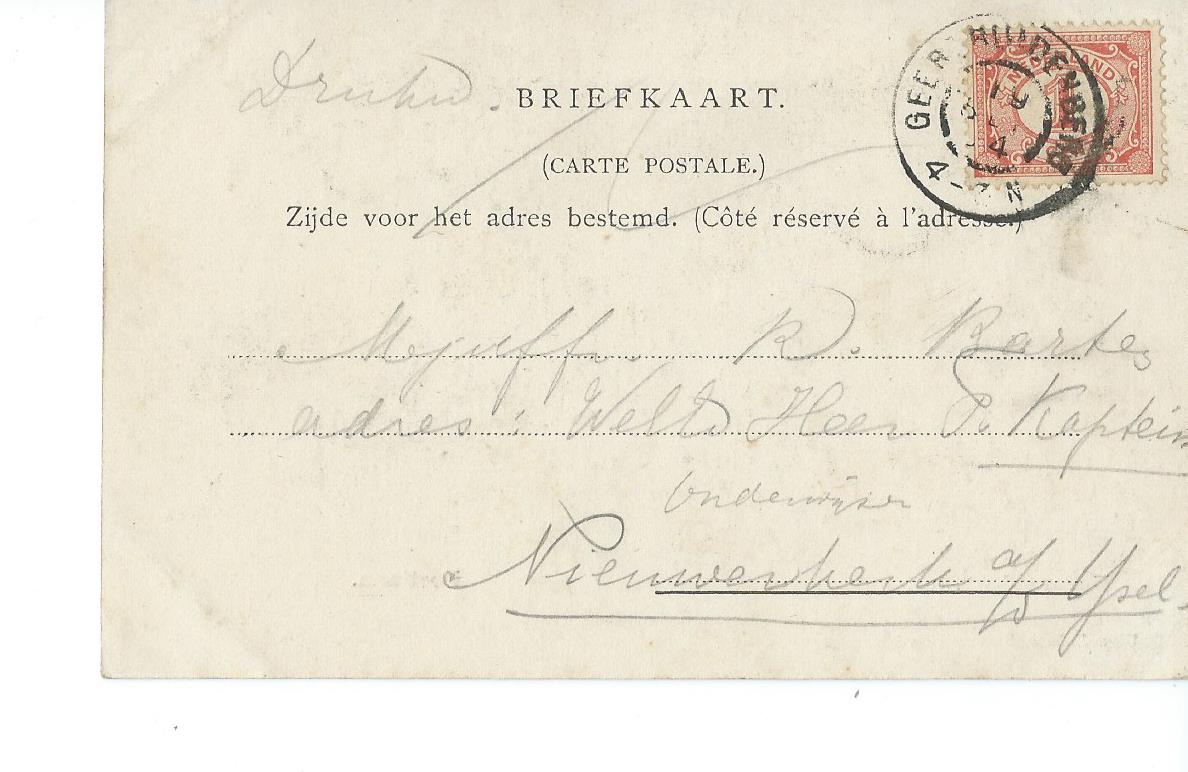 BRIEFKAART.
(CARTE POSTALE.)
Zijde voor het adres bestemd. (Côté réservé à l'adresse.)
NEDERLAND
4-7 N
Mejuffr. R. Bartes
adres: Weled Heer P. Kaptein
Onderwijzer
Nieuwerkerk a/d IJsel.